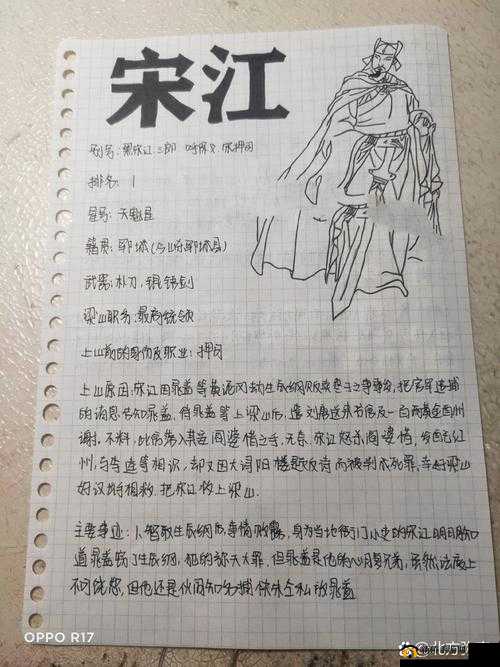 宋江
别号:黑宋江 三郎 呼保义 宋押司
排名:1
星号:天魁星
籍贯:郓城(今山东郓城县)
武器:朴刀,锟铻剑
梁山职务:最高统领
上山前的身份及职业:押司
上山原因:宋江因晁盖等黄泥冈劫生辰纲败露,把官军追捕
的消息告知晁盖,待晁盖等上梁山后,遣刘唐送来书信及一百两黄金
谢,不料,此信落入其妾阎婆惜之手,无奈,宋江怒杀阎婆惜,发配江
州,与李逵等相识,却又因大词阳楼题反诗而被判处死罪,幸好梁山
好汉将相救,把宋江救上梁山.
主要事迹:1.智取生辰纲的事情败露,身为当地衙门小吏的宋江明明知
道晁盖劫了生辰纲,犯的弥天大罪,但晁盖是他的心腹兄弟,虽然法度上
不可饶恕,但他还是伙同知名捕快朱仝私放晁盖
OPPO R17